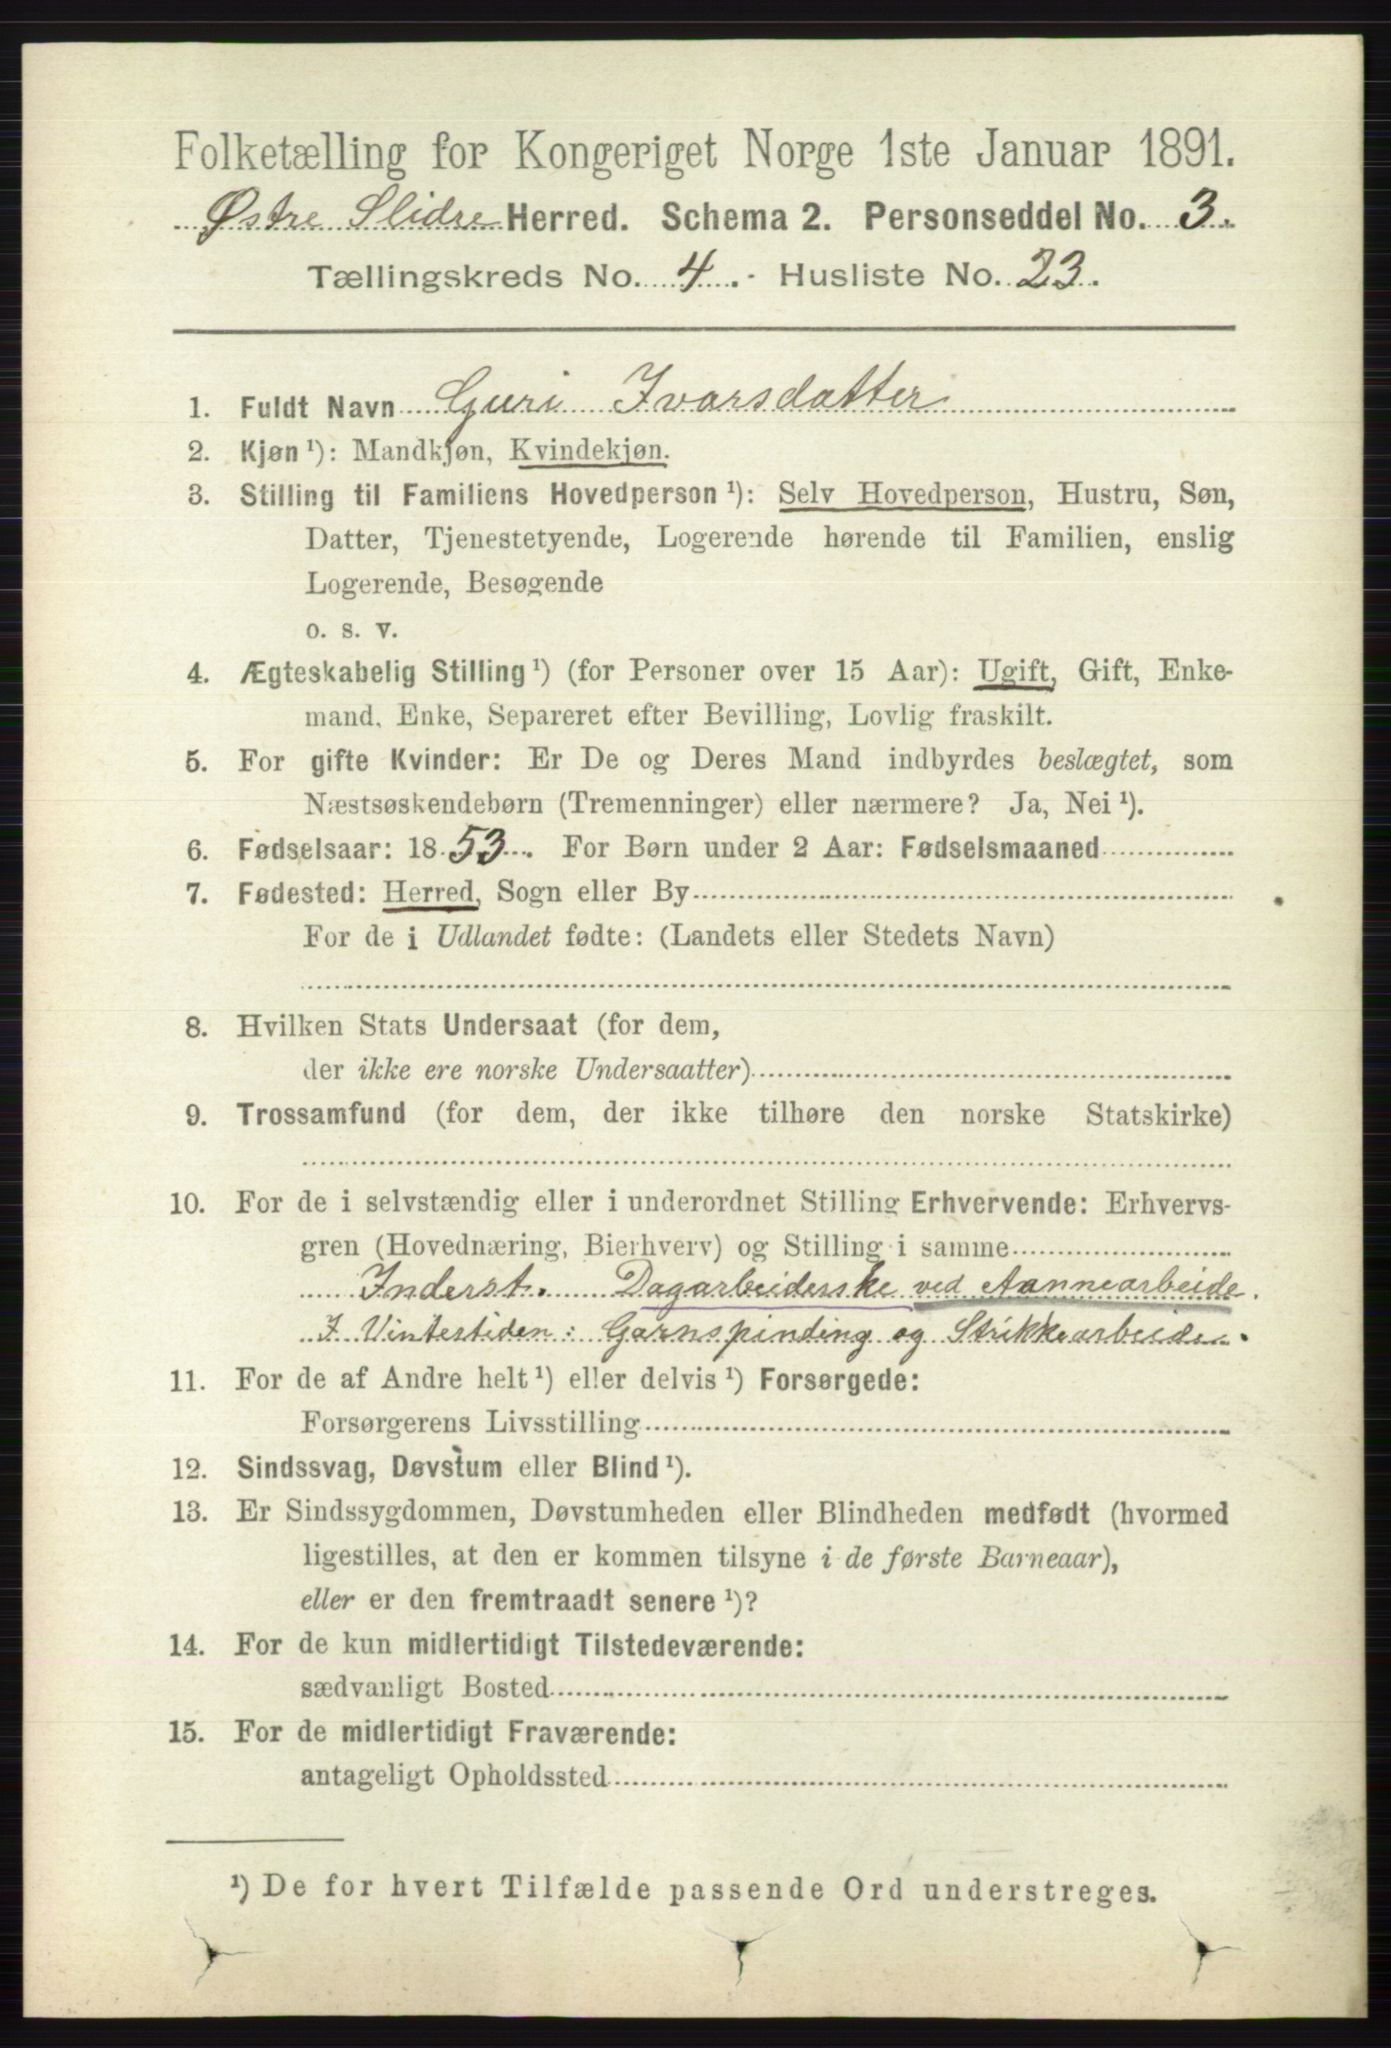 Folketælling for Kongeriget Norge 1ste Januar 1891.
Østre Slidre Herred. Schema 2. Personseddel No. 3.
Tællingskreds No. 4. - Husliste No. 23.
1. Fuldt Navn Guri Ivarsdatter
2. Kjøn ¹): Mandkjøn, Kvindekjøn.
3. Stilling til Familiens Hovedperson ¹): Selv Hovedperson, Hustru, Søn,
Datter, Tjenestetyende, Logerende hørende til Familien, enslig
Logerende, Besøgende
o. s. v.
4. Ægteskabelig Stilling ¹) (for Personer over 15 Aar): Ugift, Gift, Enke-
mand, Enke, Separeret efter Bevilling, Lovlig fraskilt.
5. For gifte Kvinder: Er De og Deres Mand indbyrdes beslægtet, som
Næstsøskendebørn (Tremenninger) eller nærmere? Ja, Nei ¹).
6. Fødselsaar: 1853. For Børn under 2 Aar: Fødselsmaaned
7. Fødested: Herred, Sogn eller By
For de i Udlandet fødte: (Landets eller Stedets Navn)
8. Hvilken Stats Undersaat (for dem,
der ikke ere norske Undersaatter)
9. Trossamfund (for dem, der ikke tilhøre den norske Statskirke)
10. For de i selvstændig eller i underordnet Stilling Erhvervende: Erhvervs-
gren (Hovednæring, Bierhverv) og Stilling i samme
Inderst. Dagarbeiderske ved Aannearbeide.
I Vintertiden: Garnspinding og Strikkearbeide.
11. For de af Andre helt ¹) eller delvis ¹) Forsørgede:
Forsørgerens Livsstilling
12. Sindssvag, Døvstum eller Blind ¹).
13. Er Sindssygdommen, Døvstumheden eller Blindheden medfødt (hvormed
ligestilles, at den er kommen tilsyne i de første Barneaar),
eller er den fremtraadt senere ¹)?
14. For de kun midlertidigt Tilstedeværende:
sædvanligt Bosted
15. For de midlertidigt Fraværende:
antageligt Opholdssted
¹) De for hvert Tilfælde passende Ord understreges.